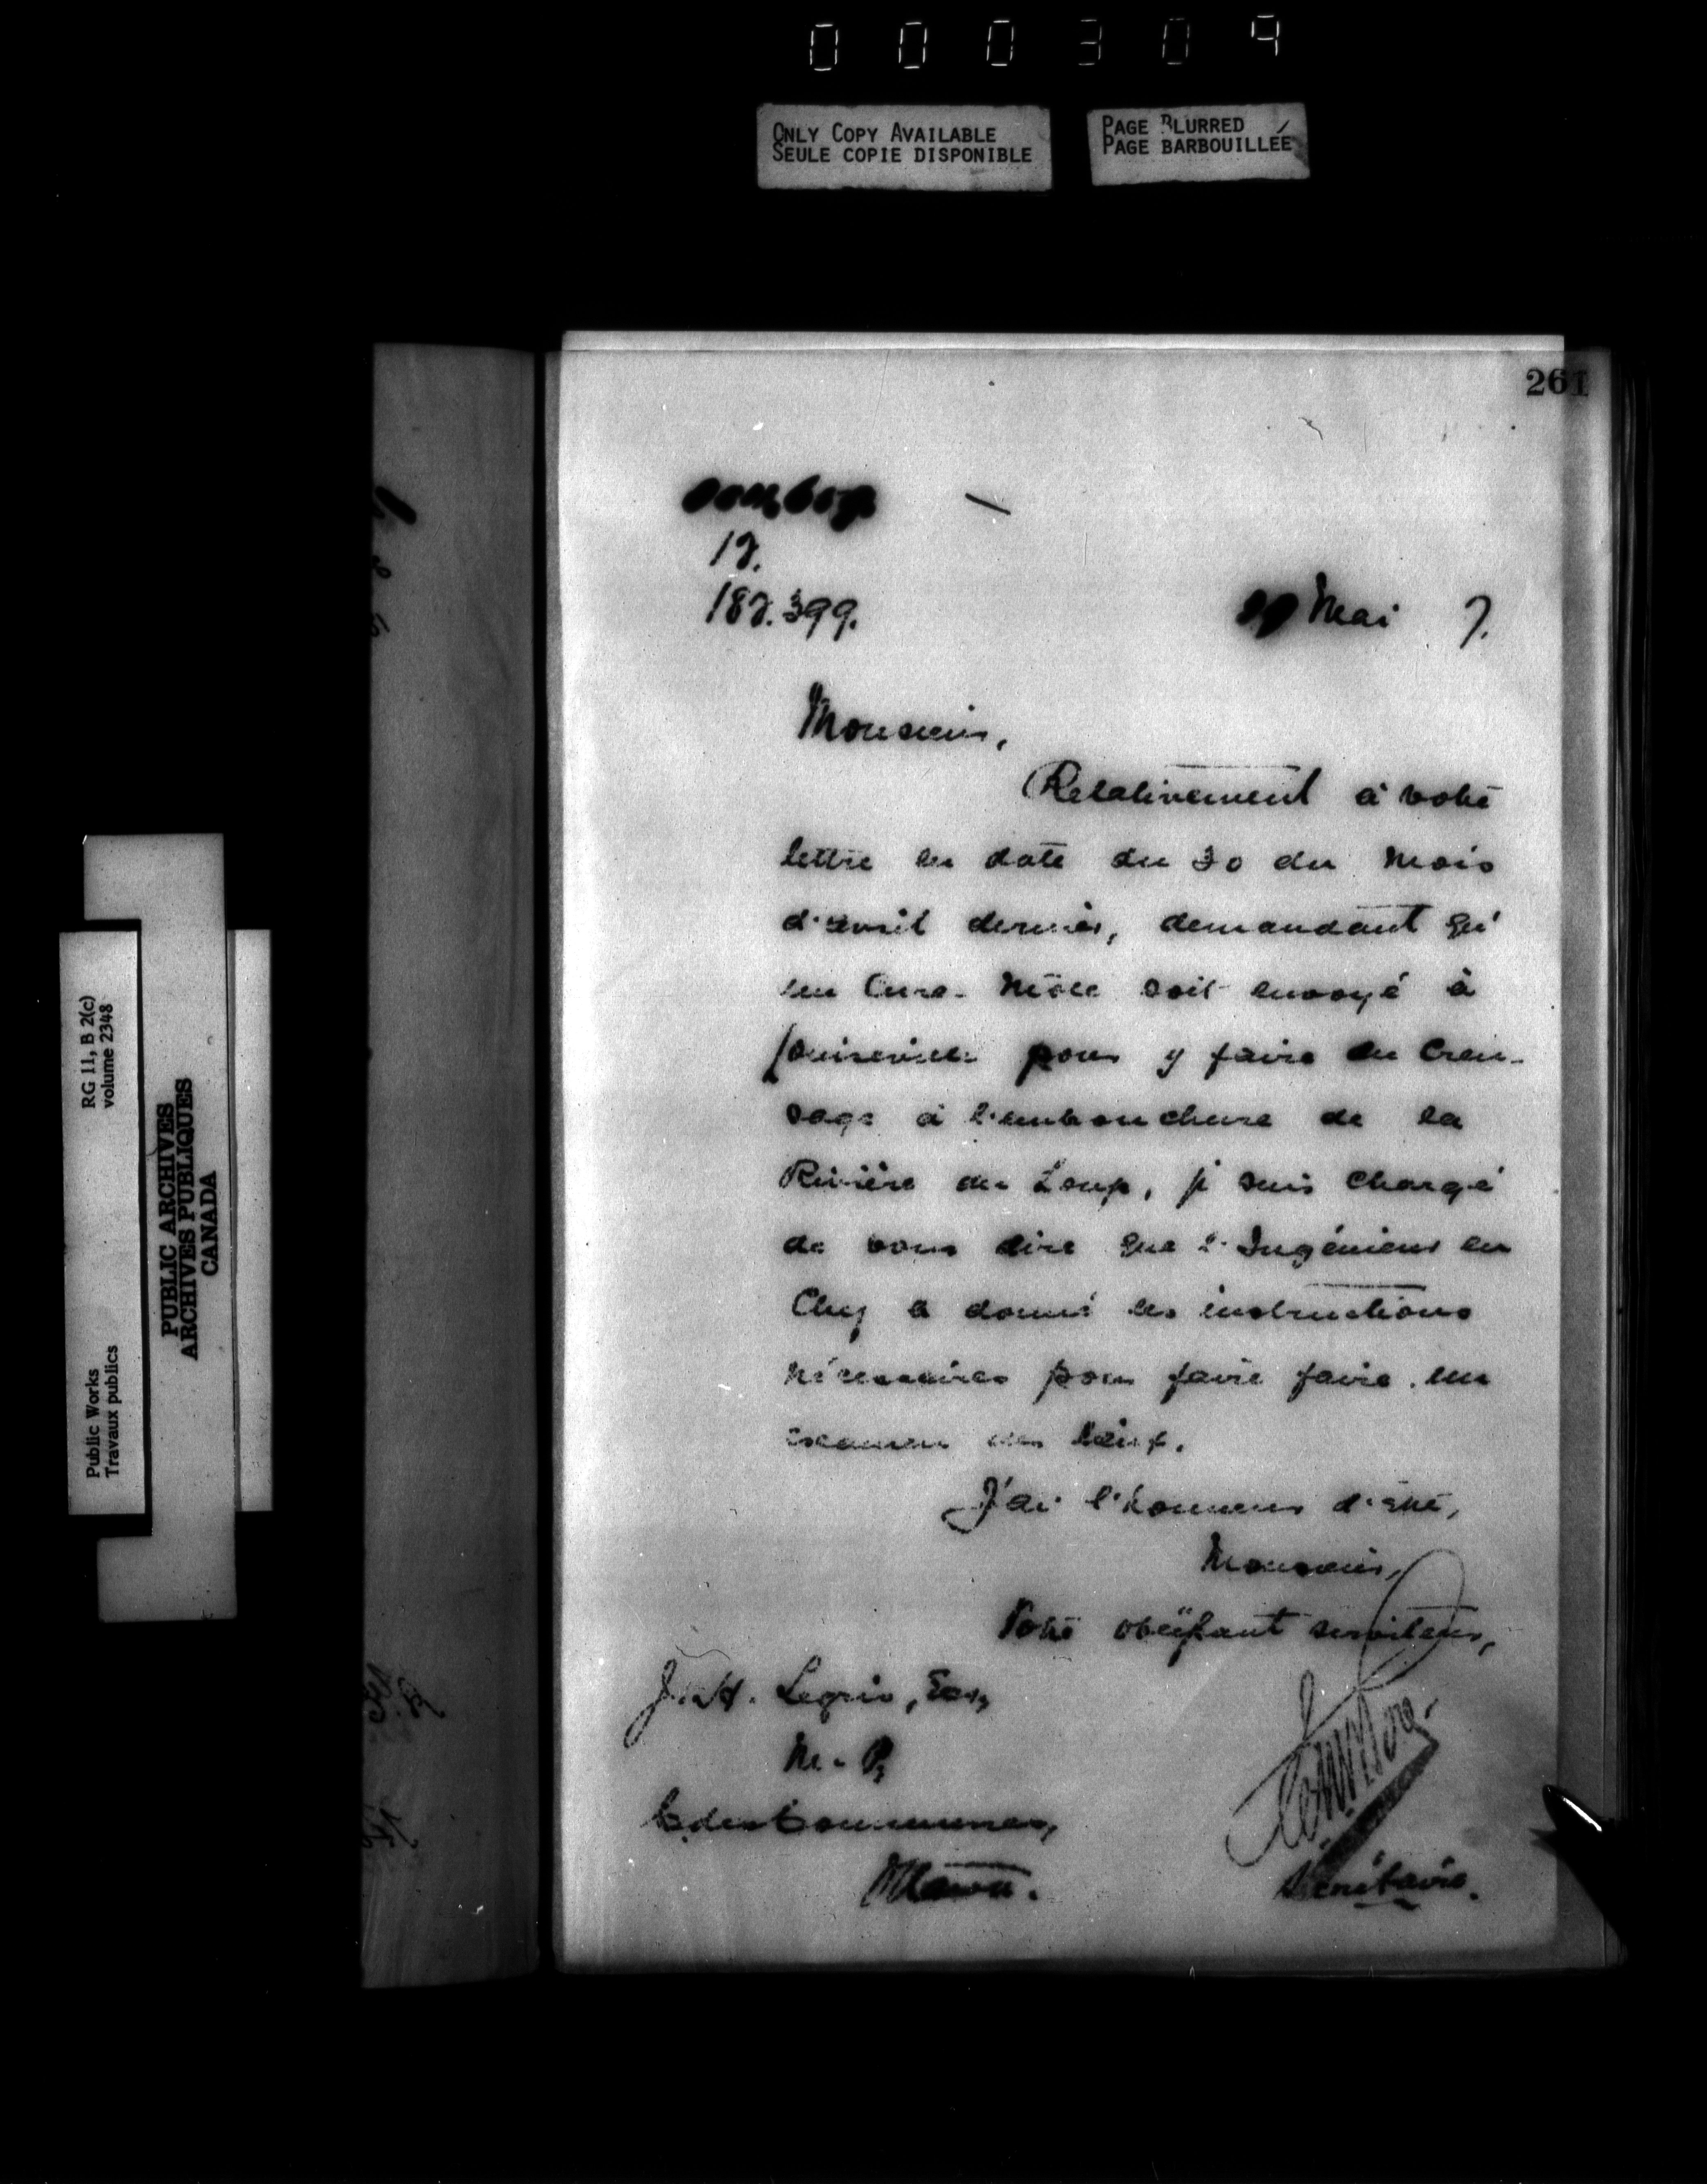 000309
ONLY COPY AVAILABLE
SEULE COPIE DISPONIBLE
PAGE BLURRED
PAGE BARBOUILLÉE
RG 11, B 2(c)
volume 2348
Public Works
Travaux publics
PUBLIC ARCHIVES
ARCHIVES PUBLIQUES
CANADA
261
182.399.
Mai 7.
Monsieur,
Relativement à votre
lettre en date du 30 du mois
d'avril dernier, demandant qu'
un Cure-Môle soit envoyé à
Louiseville pour y faire du creu-
sage à l'embouchure de la
Rivière du Loup, je suis chargé
de vous dire que l'Ingénieur en
Chef a donné les instructions
nécessaires pour faire faire un
examen des lieux.
J'ai l'honneur d'être,
Monsieur,
Votre obéissant serviteur,
J. H. Legris, Ecr,
M. P,
C. des Communes,
Ottawa.
Secrétaire.